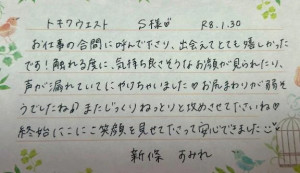 トキワウエスト S様 R8.1.30
お仕事の合間に呼んで下さり、出会えてとても嬉しかった
です!触れる度に、気持ち良さそうなお顔が見られたり、
声が漏れていてにやけちゃいました♡お尻まわりが弱そ
うでしたね♪またじっくりねっとりと攻めさせて下さいね♡
終始にこにこ笑顔を見せて下さって安心できました
新條 すみれ